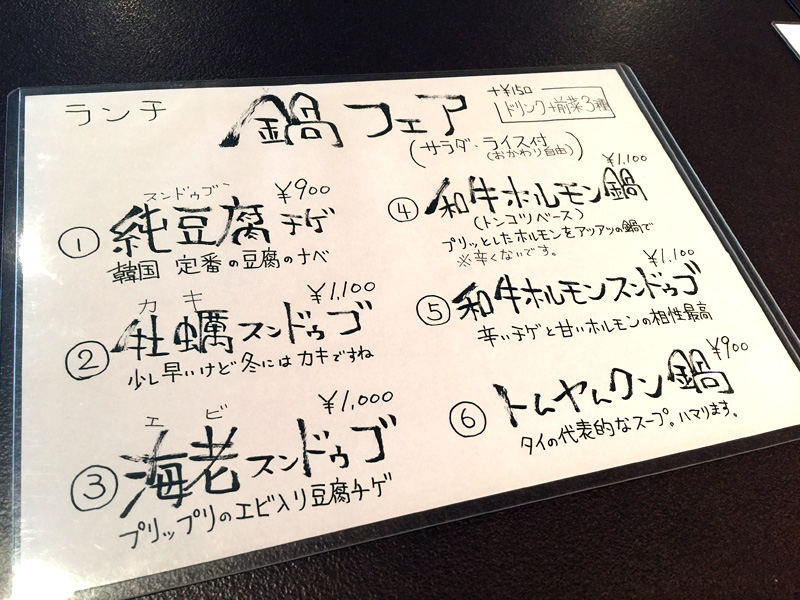 ランチ
鍋フェア
+¥150
ドリンク+前菜3種
(サラダ・ライス付
(おかわり自由))
スンドゥブ
¥900
① 純豆腐チゲ
韓国 定番の豆腐のナベ
¥1,100
カキ
② 牡蠣スンドゥブ
少し早いけど冬にはカキですね
¥1,000
エビ
③ 海老スンドゥブ
プリップリのエビ入り豆腐チゲ
¥1,100
④ 和牛ホルモン鍋
(トンコツベース)
プリッとしたホルモンをアツアツの鍋で
※辛くないです。
¥1,100
⑤ 和牛ホルモンスンドゥブ
辛いチゲと甘いホルモンの相性最高
¥900
⑥ トムヤムクン鍋
タイの代表的なスープ。ハマります。